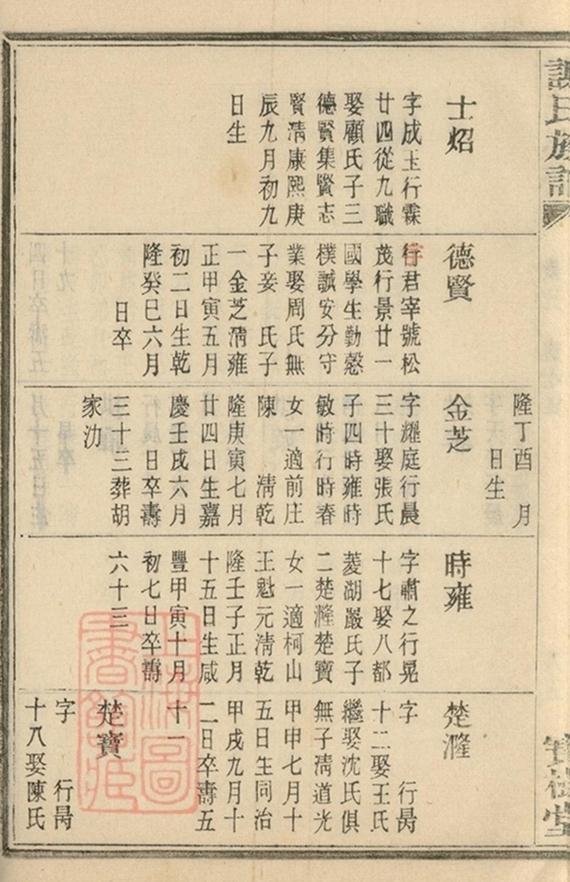 氏族譜
士炤
字成玉行霖
廿四從九職
娶顧氏子三
德賢集賢志
賢清康熙庚
辰九月初九
日生
德賢
字
行君宰號松
茂行景廿一
國學生勤慤
樸誠安分守
業娶周氏無
子妾 氏子
一金芝清雍
正甲寅五月
初二日生乾
隆癸巳六月
日卒
隆丁酉 月
日生
金芝
字耀庭行晨
三十娶張氏
子四時雍時
敏時行時春
女一適前庄
陳 清乾
隆庚寅七月
廿四日生嘉
慶壬戌六月
日卒壽
三十三葬胡
家氻
時雍
字肅之行晃
十七娶八都
菱湖嚴氏子
二楚漋楚寶
女一適柯山
王魁元清乾
隆壬子正月
十五日生咸
豐甲寅十月
初七日卒壽
六十三
楚漋
字 行昺
十二娶王氏
繼娶沈氏俱
無子清道光
甲申七月十
五日生同治
甲戌九月十
二日卒壽五
十一
楚寶
字 行昺
十八娶陳氏
堂